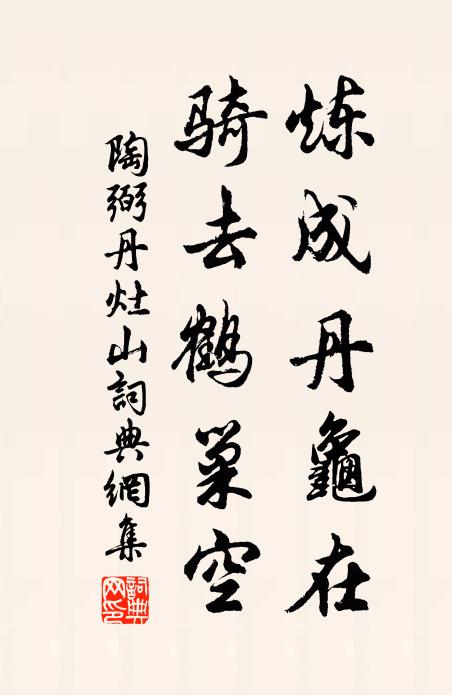 炼成丹龜在
骑去鶴巢空
陶弼丹灶山詞典網集
詞典网印